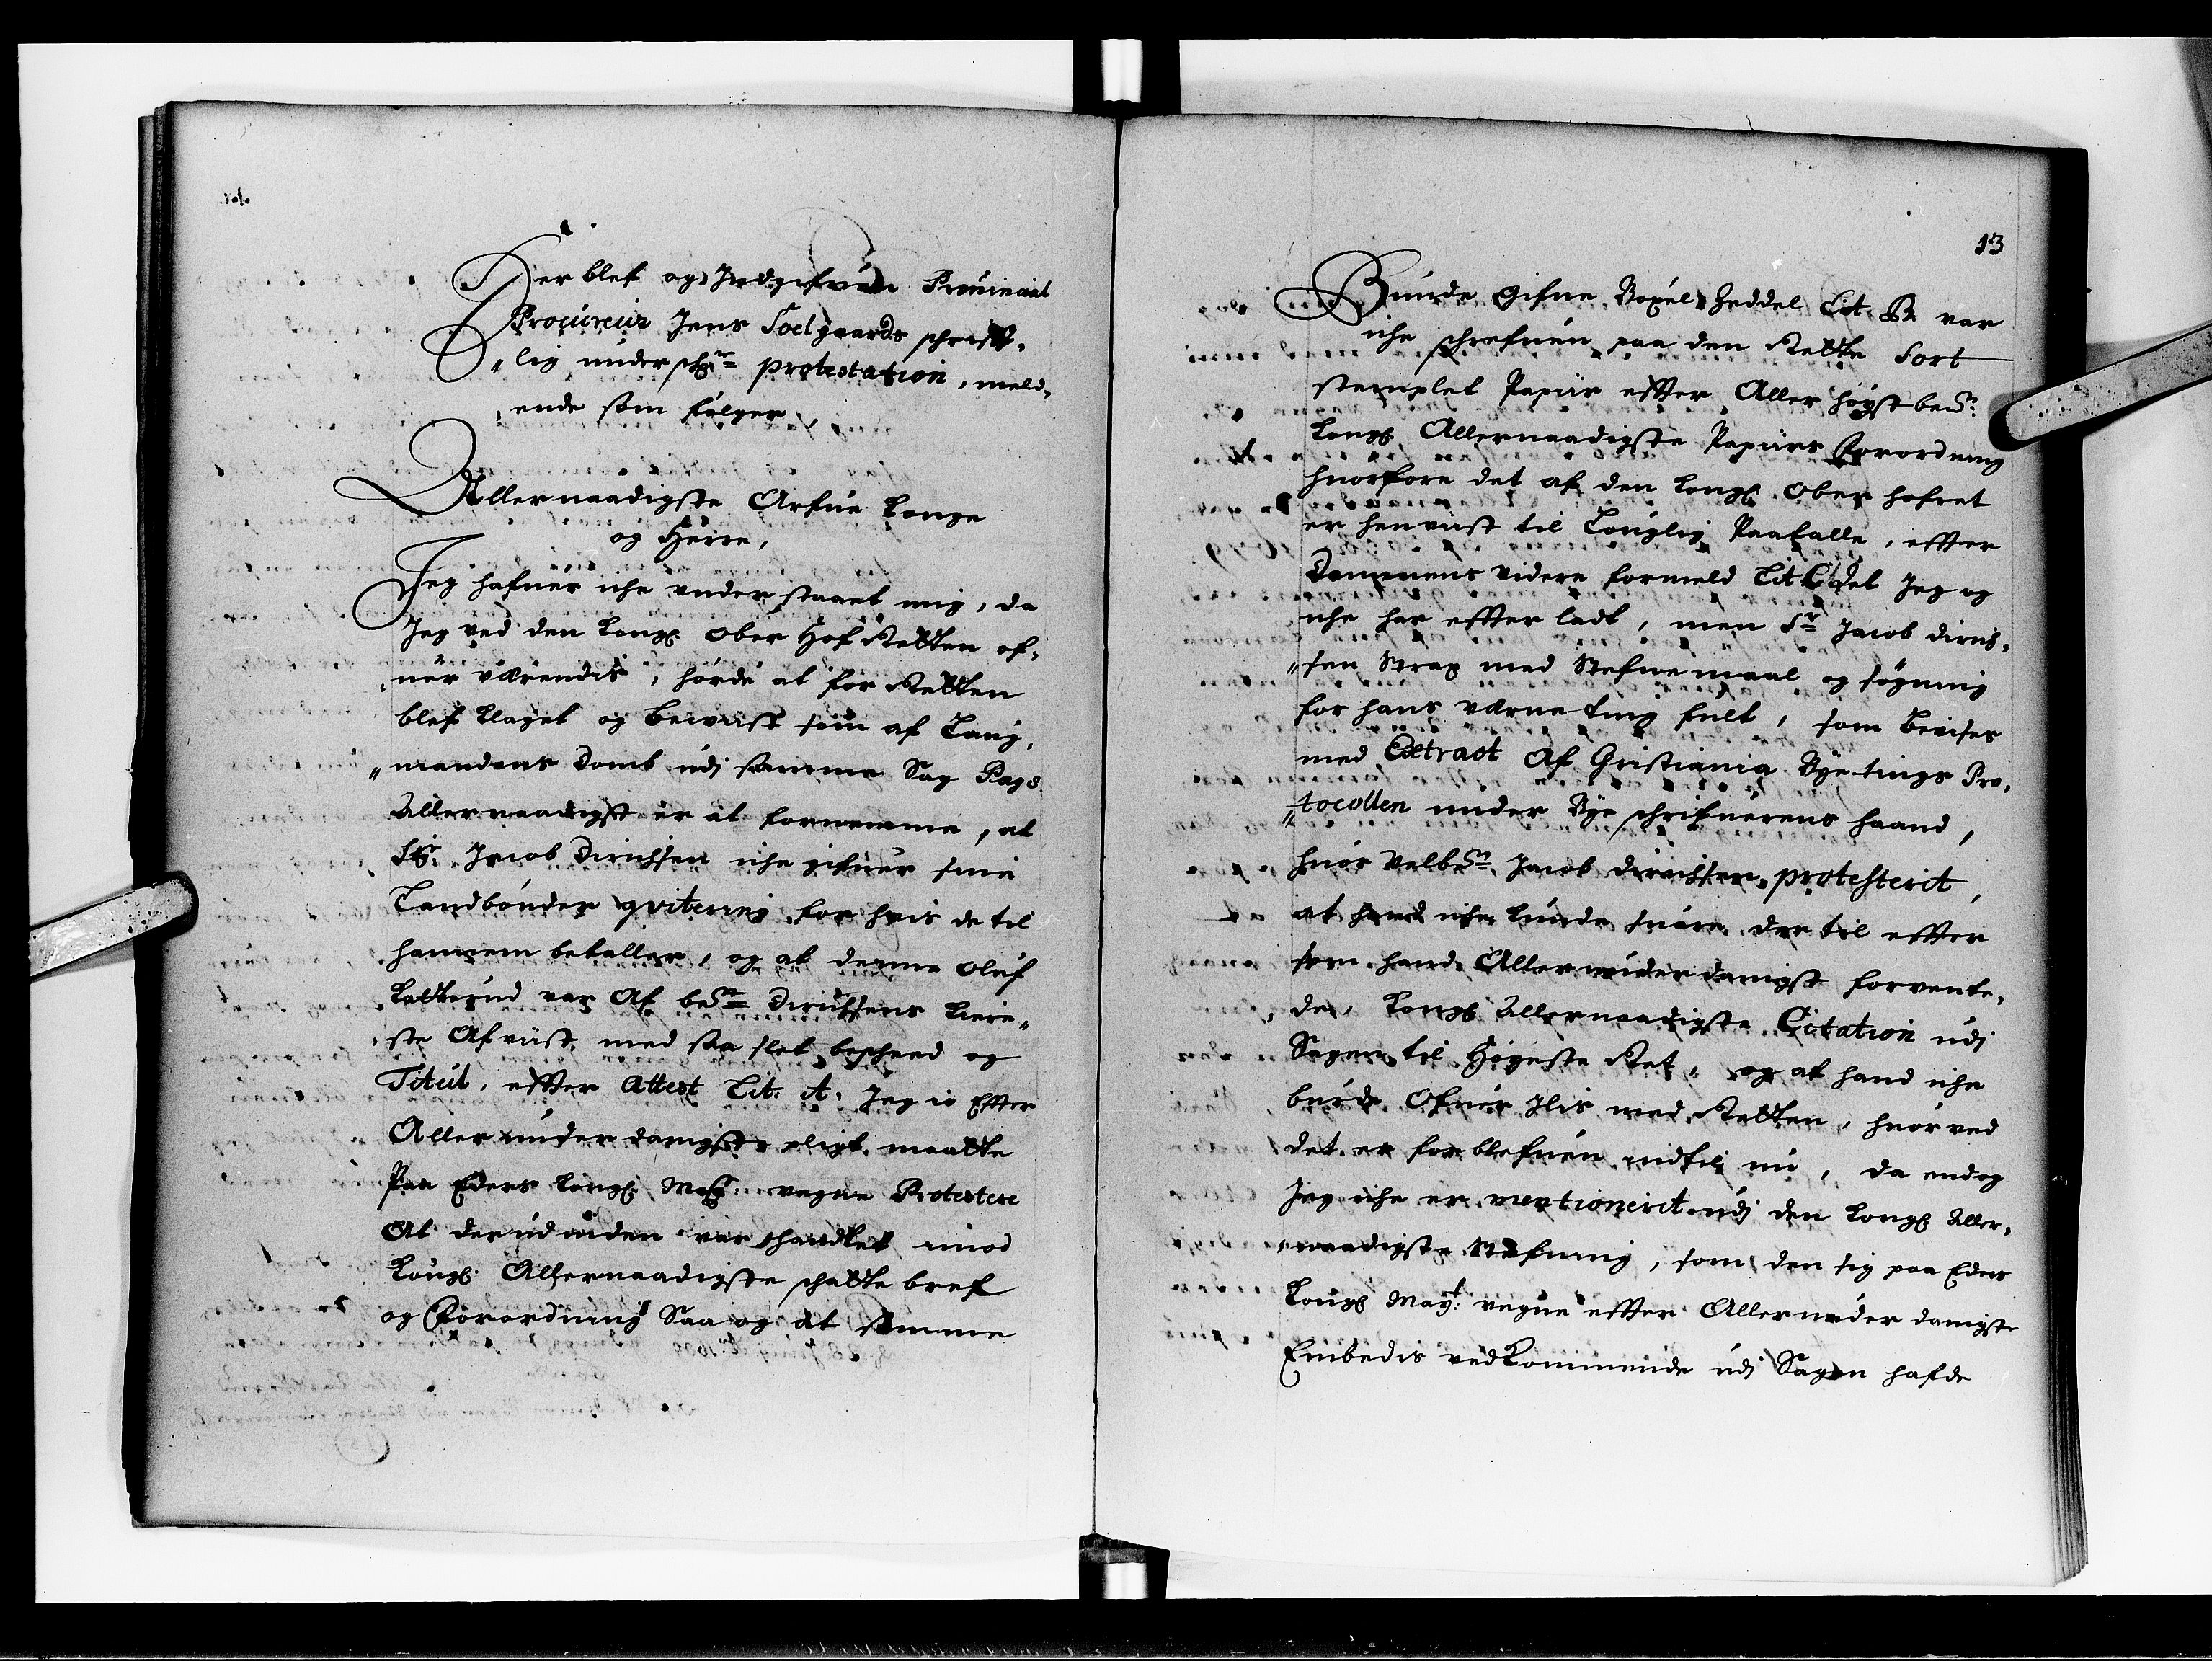 Der blef og Indgifuen Prouincial
Procureur Jens Toelgaards schrift„
„lig underschr: protestation, meld„
„ende som følger,
Allernaadigste Arfue Konge
og Herre,
Jeg hafuer iche understaaet mig, da
Jeg ved den Kongl: Ober Hof Retten of„
„uer værendis, hørde at for Retten
blef klaget og beviist som af Laug„
„mandens Domb udj samme Sag Pag 8
Allernaadigst er at fornemme, at
Sr: Jacob Dirichsen iche gifuer sine
Landbønder qvitering for hvis de til
hannem betaller, og at denne Oluf
var Af bem:te Dirichsens
„ste Afviist med saa slet bescheed og
Titul, effter Attest Lit: A. Jeg io Effter
Allerunderdanigste pligt maatte
Paa Eders Kongl: May: vegne Protestere
At derudinden var handlet imod
Kongl: Allernaadigste schatte bref
og Forordning Saa og at samme
13
Bunde gifne Bøxel Zeddel Lit. B. var
iche schrefuen paa den Rette sort
stemplet Papiir effter Aller høystbem:te
Kongl: Allernaadigste Papiirs Forordning
huorfore det af den Kongl: Ober hofret
er henviist til Louglig Paatalle, effter
Dommens videre formeld Lit C Det Jeg og
iche har effter ladt, men Sr Jacob Dirich„
„sen strax med Stefnemaal og søgning
for hans værne ting fult, som bevises
med Extract Af Christiania Bye tings Pro„
„tocollen under Bye schrifuerens haand,
huor Velbem:te Jacob Dirichsen protesterit,
at hand iche kunde suare der til effter
som hand Allerunderdanigst forvente„
de, Kongl: Allernaadigste Citation udj
Sagen til Høyeste Ret, og at hand iche
burde Ofuer Ilis med Retten, huor ved
det er forblefuen indtil nu, da endog
Jeg iche er mentionerit udj den Kongl: Aller„
„naadigste Stefning, som den sig paa Eders
Kongl: May:t vegne effter Allerunderdanigste
Embedis vedkommende udj Sagen hafde